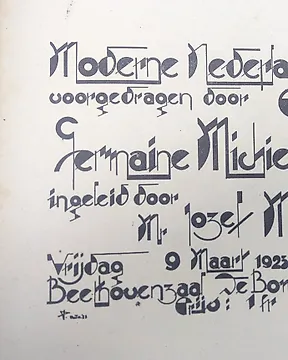 Moderne Nederla
voorgedragen door
Germaine Michie
ingeleid door
Mr. Jozef M
Vrijdag 9 Maart 1923
Beethovenzaal De Bor
Prijs: 1 fr